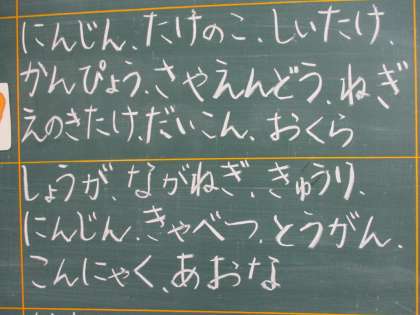 にんじん、たけのこ、しいたけ、
かんぴょう、さやえんどう、ねぎ
えのきたけ、だいこん、おくら
しょうが、ながねぎ、きゅうり、
にんじん、きゃべつ、とうがん、
こんにゃく、あおな